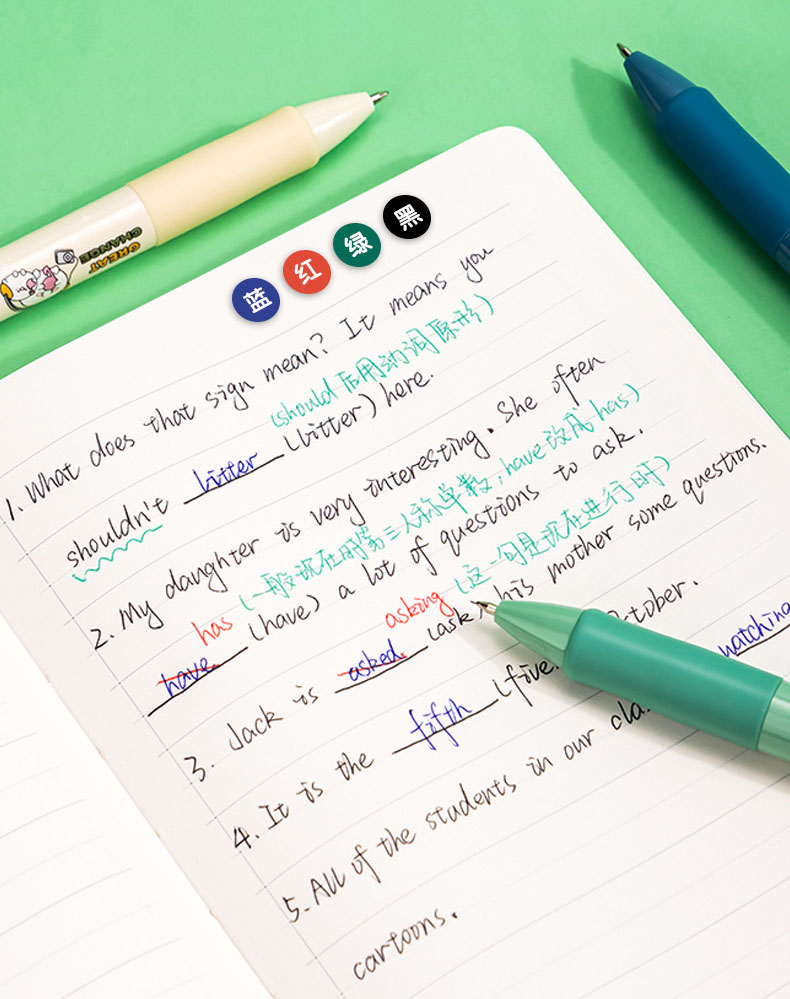 GREAT
CHANGE
蓝 红 绿 黑
1. What does that sign mean? It means you
(should 后用动词原形)
shouldn't litter (litter) here.
2. My daughter is very interesting. She often
has (一般现在时第三人称单数, have 改成 has)
have (have) a lot of questions to ask.
asking (这一句是现在进行时)
3. Jack is asked (ask) his mother some questions.
4. It is the fifth (five. tober.
5. All of the students in our cla. watching
cartoons.